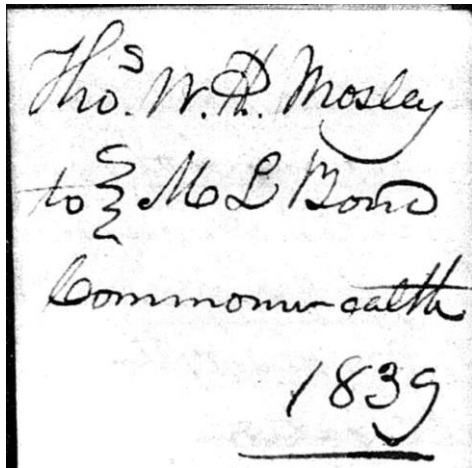 Thos. W. H. Mosley
to } M L Bond
Commonwealth
1839